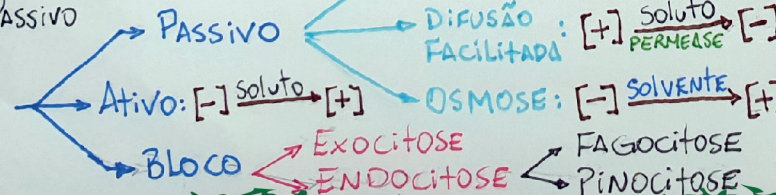 PASSIVO
PASSIVO
DIFUSÃO
FACILITADA: [+] SOLUTO [-]
PERMEASE
ATIVO: [-] SOLUTO [+]
OSMOSE: [-] SOLVENTE [+]
BLOCO
EXOCITOSE
ENDOCITOSE
FAGOCITOSE
PINOCITOSE